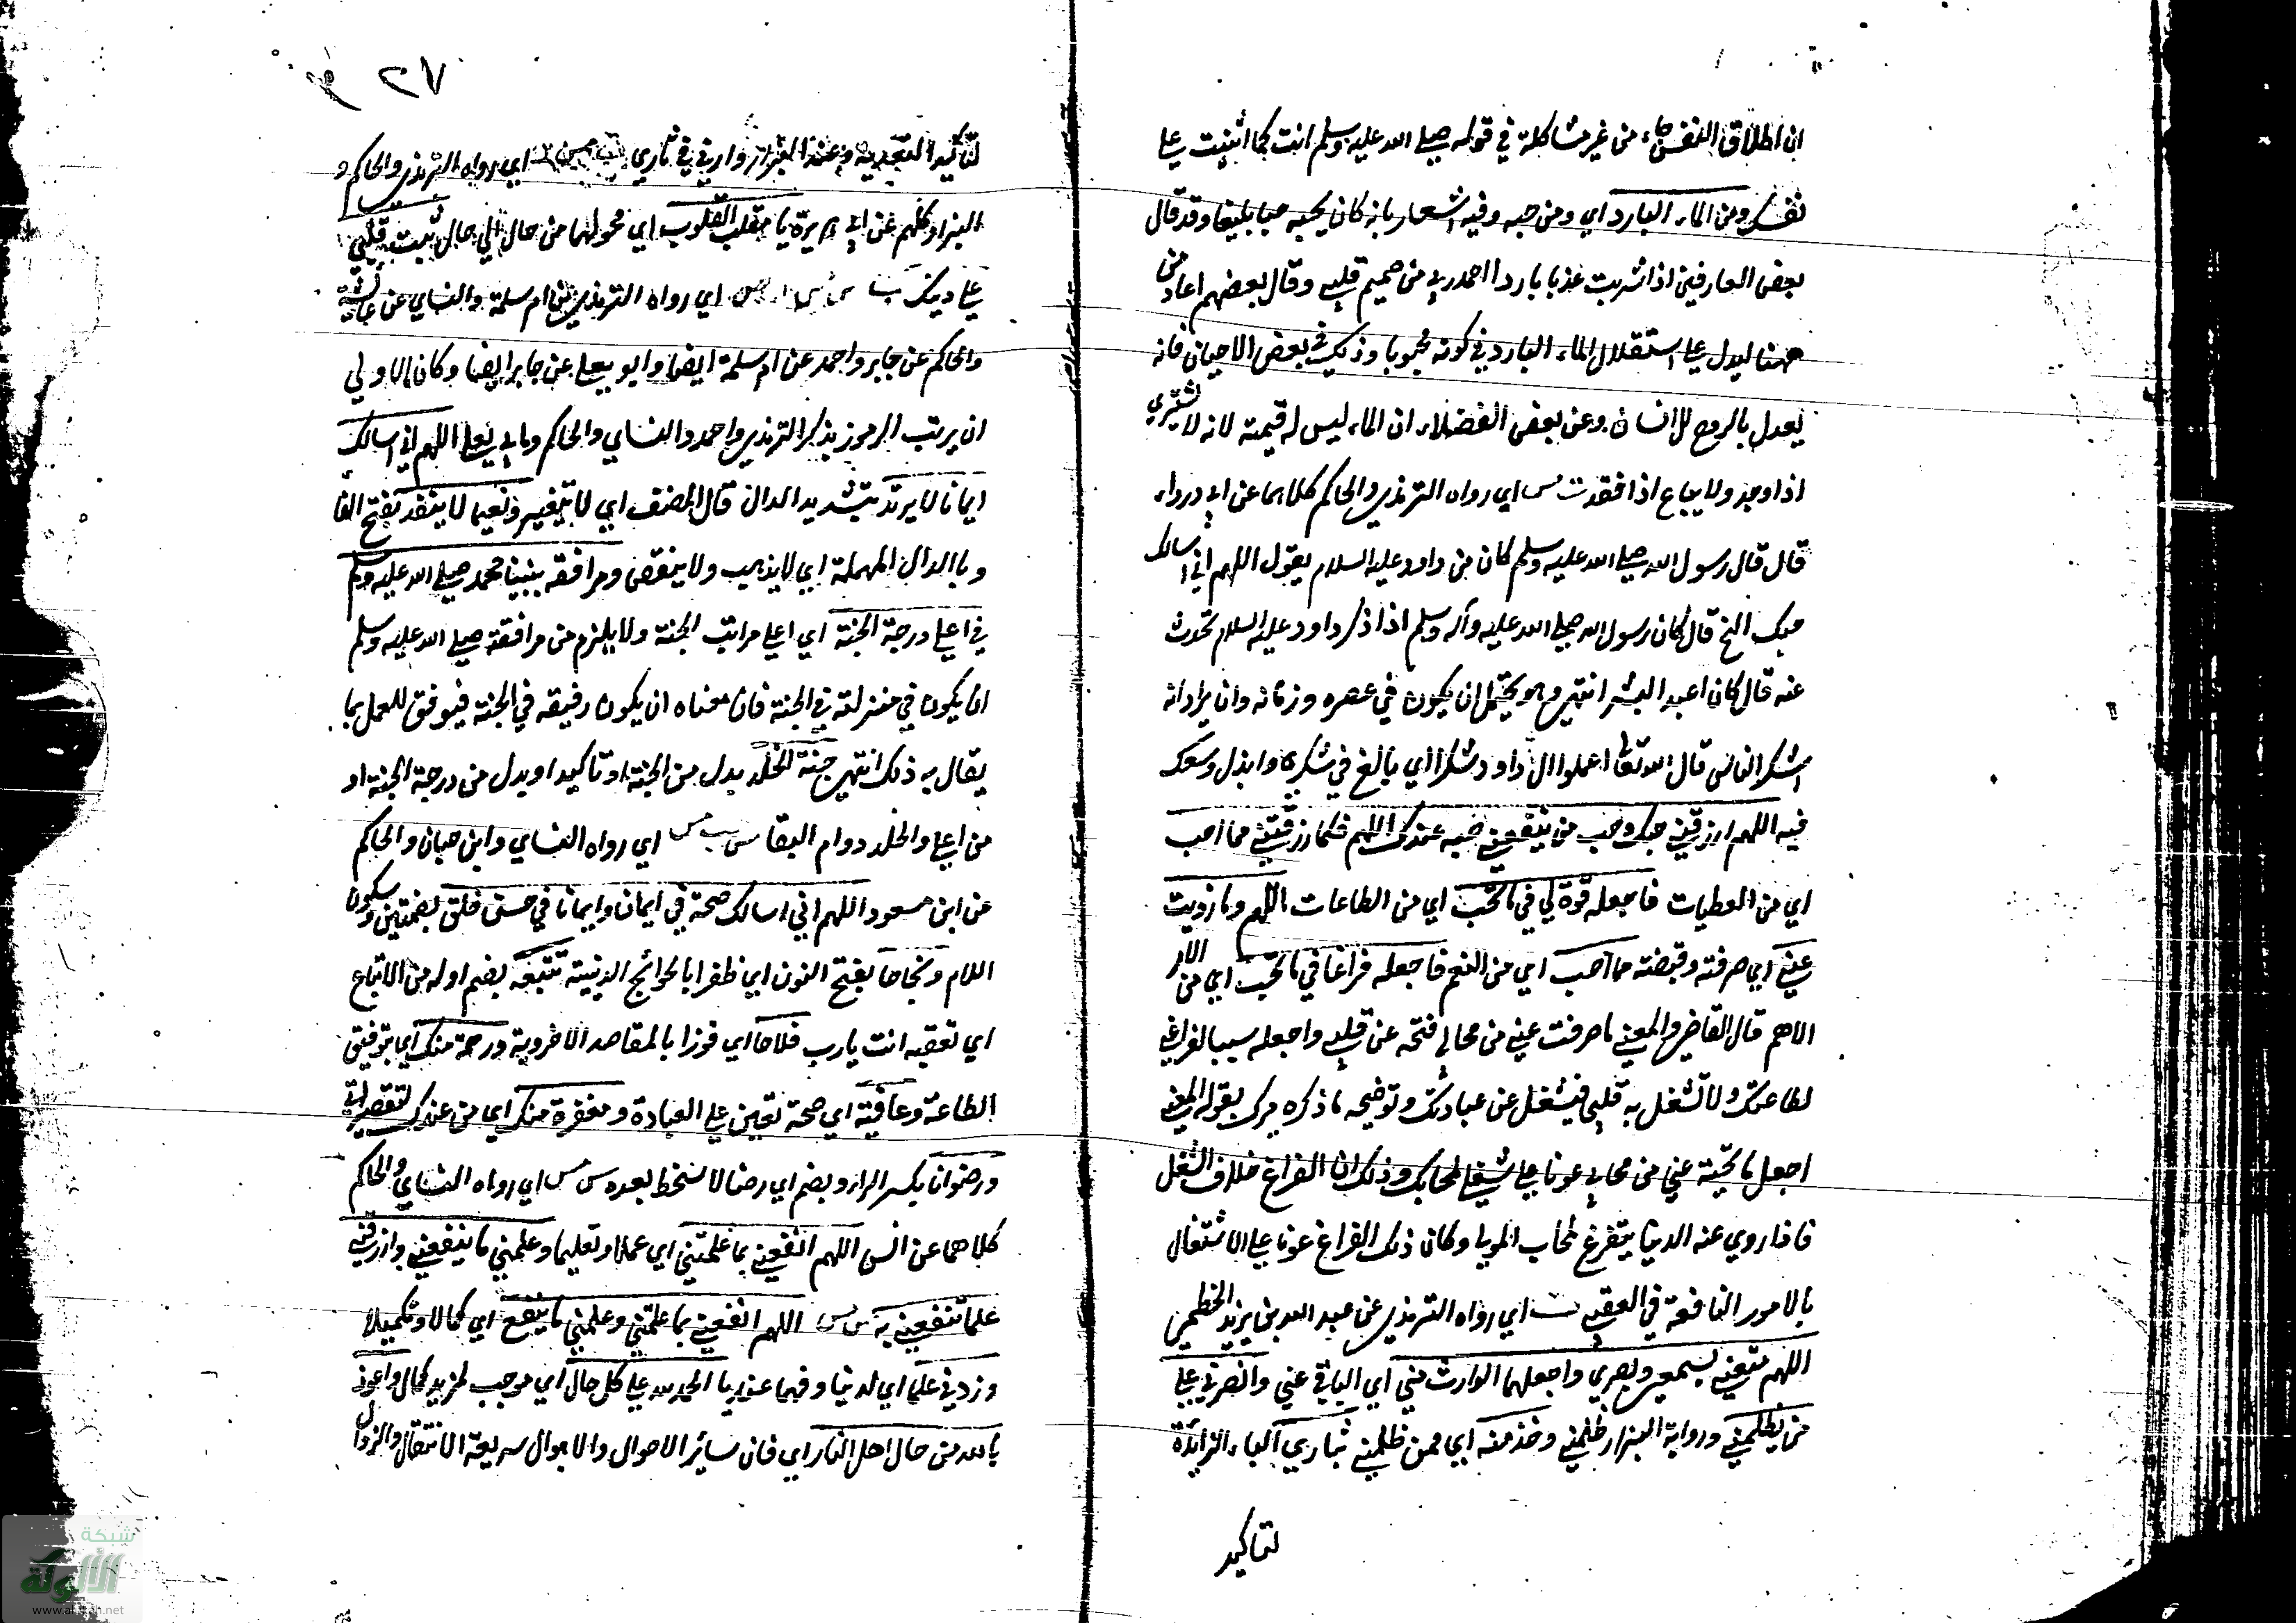 ان اطلاق النفس جاء من غير مشاكلة في قوله صلى الله عليه وسلم انت كما اثنيت على
نفسك ومن الماء البارد اي ومن حبه وفيه اشعار بانه كان يحبه حبا بليغا وقد قال
بعض العارفين اذا شربت عذبا باردا احمد ربي من صميم قلبي وقال بعضهم اعاد من
ههنا ليدل على استقلال الماء البارد في كونه محبوبا وذلك في بعض الاحيان فانه
يعدل بالروح للانسان وعن بعض الفضلاء ان الماء ليس له قيمة لانه لا يشترى
اذا وجد ولا يباع اذا فقد ت مس اي رواه الترمذي والحاكم كلاهما عن ابي درداء
قال قال رسول الله صلى الله عليه وسلم كان من داود عليه السلام يقول اللهم اني اسالك
حبك الخ قال كان رسول الله صلى الله عليه وآله وسلم اذا ذكر داود عليه السلام تحدث
عنه قال كان اعبد البشر انتهى وهو يحتمل ان يكون في عصره وزمانه وان يراد انه
اشكر الناس قال الله تعا اعملوا ال داود شكرا اي بالغ في شكري وابذل وسعك
فيه اللهم ارزقني حبك وحب من ينفعني حبه عندك اللهم فكما رزقتني مما احب
اي من العطيات فاجعله قوة لي في ما تحب اي من الطاعات اللهم وما زويت
عني اي صرفته وقبضته مما احب اي من النعم فاجعله فراغا في ما تحب اي من الامر
الاهم قال القاضي والمعنى ما صرفت عني من محابي فنحه عن قلبي واجعله سببا لفراغي
لطاعتك ولا تشغل به قلبي فيشغل عن عبادتك وتوضيحه ما ذكره ميرك بقوله المعنى
اجعل ما نحيته عني من محابي عونا على شغلي بمحابك وذلك ان الفراغ خلاف الشغل
فاذا روي عنه الدنيا يتفرغ لمحاب المولى وكان ذلك الفراغ عونا على الاشتغال
بالامور النافعة في العقبى ت اي رواه الترمذي عن عبد الله بن يزيد الخطمي
اللهم متعني بسمعي وبصري واجعلهما الوارث مني اي الباقي عني وانصرني على
من يظلمني ورواية البزار ظلمني وخذ منه اي ممن ظلمني بثاري الباء الزائدة
لتاكيد
٢٧
لتاكيد التعدية وعند البزار وارني في ثاري اي رواه الترمذي والحاكم و
البزار كلهم عن ابي هريرة يا مقلب القلوب اي محولها من حال الى حال ثبت قلبي
على دينك ت س مس ا ص اي رواه الترمذي عن ام سلمة والنساي عن عائشة
والحاكم عن جابر واحمد عن ام سلمة ايضا وابو يعلى عن جابر ايضا وكان الاولى
ان يرتب الرموز بذكر الترمذي واحمد والنساي والحاكم وابي يعلى اللهم اني اسالك
ايمانا لا يرتد بتشديد الدال قال المصنف اي لا يتغير ونعيما لا ينفد بفتح الفا
وبالدال المهملة اي لا يذهب ولا ينقص ومرافقة نبينا محمد صلى الله عليه وسلم
في اعلى درجة الجنة اي اعلى مراتب الجنة ولا يلزم من مرافقته صلى الله عليه وسلم
ان يكون في منزلته في الجنة فان معناه ان يكون رفيقه في الجنة فيوفق للعمل بما
يقال به ذلك انتهى جنة الخلد بدل من الجنة او تاكيد او بدل من درجة الجنة او
من اعلى والخلد دوام البقا س حب مس اي رواه النساي وابن حبان والحاكم
عن ابن مسعود اللهم اني اسالك صحة في ايمان وايمانا في حسن خلق بضمتين وسكون
اللام ونجاحا بفتح النون اي ظفرا بالحوائج الدنيية تتبعه بضم اوله من الاتباع
اي تعقبه انت يا رب فلاحا اي فوزا بالمقاصد الاخروية ورحمة منك اي بتوفيق
الطاعة وعافية اي صحة تعين على العبادة ومغفرة منك اي من عندك لتقصيراتي
ورضوانا بكسر الراء وبضم اي رضا لا سخط بعده س مس اي رواه النساي والحاكم
كلاهما عن انس اللهم انفعني بما علمتني اي عملا وتعليما وعلمني ما ينفعني وارزقني
علما تنفعني به س مس اللهم انفعني بما علمتني وعلمني ما ينفع اي كمالا وتكميلا
وزدني علما اي لدنيا وفهما عنديا الحمد لله على كل حال اي موجب لمزيد كمال واعوذ
بالله من حال اهل النار اي فان سائر الاحوال والاهوال سريعة الانتقال والزوال
شبكة
الألوكة
www.alukah.net